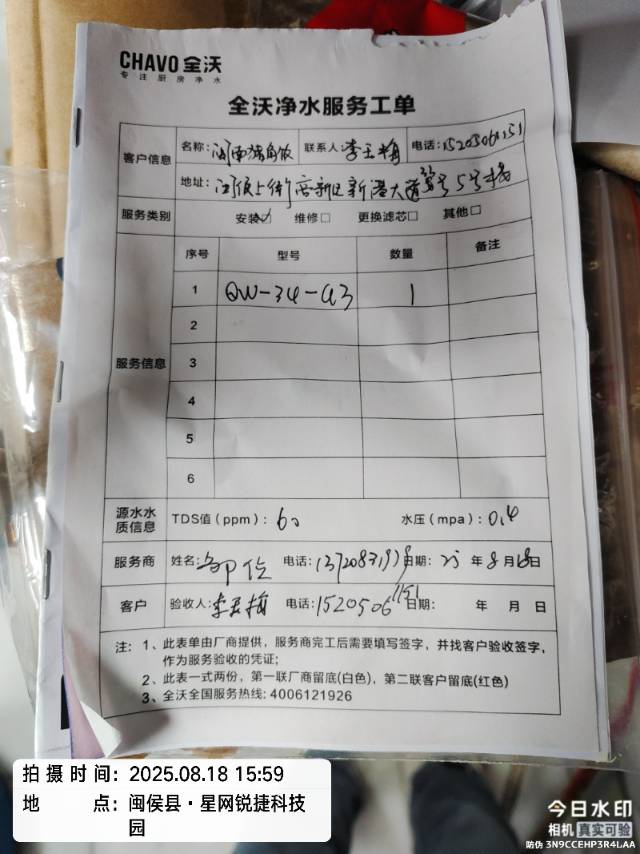 CHAVO 全沃
专注厨房净水
全沃净水服务工单
客户信息 名称: 联系人: 李玉梅 电话: 15205061151
地址: 闽侯上街高新区新港大道 5号楼
服务类别 安装☑ 维修□ 更换滤芯□ 其他□
服务信息 序号 型号 数量 备注
1 QW-34-a3 1
2
3
4
5
6
源水水质信息 TDS值（ppm）: 60 水压（mpa）: 0.4
服务商 姓名: 电话: 13720831978 日期: 25 年 8 月 18 日
客户 验收人: 李玉梅 电话: 15205061151 日期: 年 月 日
注: 1、此表单由厂商提供，服务商完工后需要填写签字，并找客户验收签字，
作为服务验收的凭证;
2、此表一式两份，第一联厂商留底(白色)，第二联客户留底(红色)
3、全沃全国服务热线: 4006121926
拍摄时间: 2025.08.18 15:59
地点: 闽侯县·星网锐捷科技
园
今日水印
相机 真实可验
防伪 3N9CCEHP3R4LAA